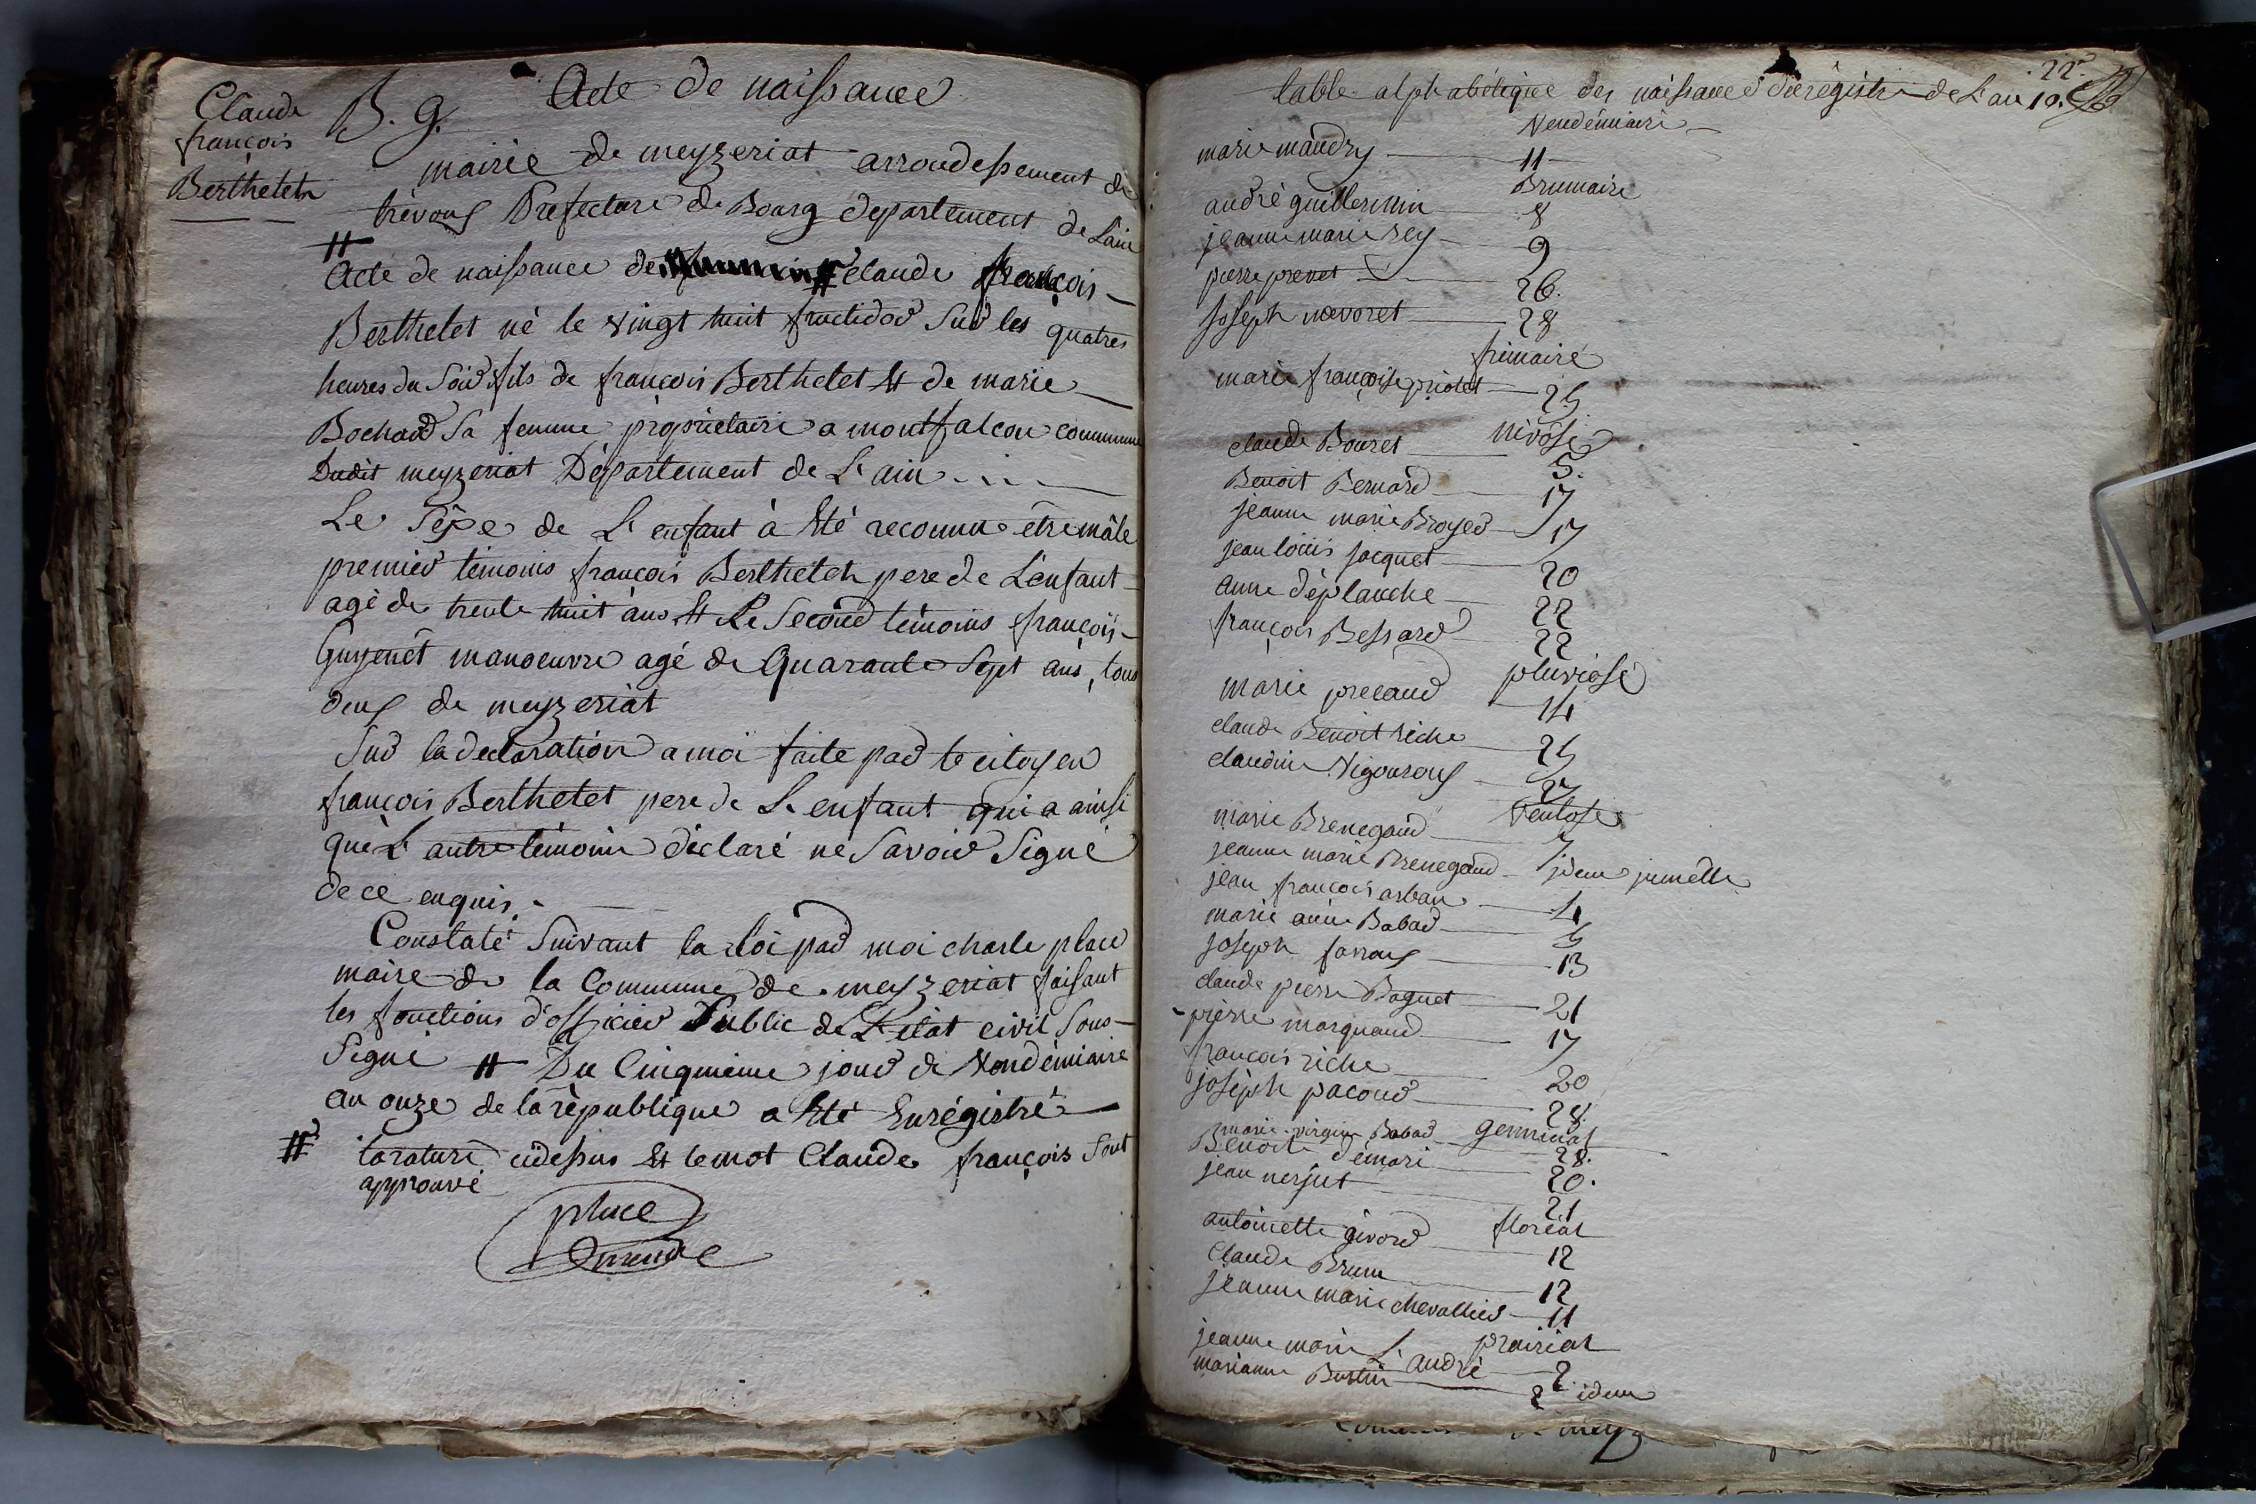 Claude
françois
Berthetet
B. g. Acte de naissance
mairie de meyzeriat arrondessement de
trevoux Prefecture de Bourg departement de Lain
Acte de naissance de # claude françois
Berthelet né le vingt huit fructidor Sur les quatres
heures du Soir fils de françois Berthelet Et de marie
Bochard Sa femme propriétaire a montfalcon commune
Dudit meyzeriat Département de L'ain
Le Sexe de L'enfant à Eté reconnu être mâle
premier témoins françois Berthelet pere de L'enfant
agé de trente huit ans Et Le Second témoins françois
Guyenet manoeuvre agé de Quarante Sept ans, tous
deux de meyzeriat
Sur la declaration a moi faite par le citoyen
françois Berthelet pere de L'enfant qui a ainsi
que L'autre témoins déclaré ne Savoir Signé
de ce enquis.
Constaté Suivant la Loi par moi charle place
maire de la Commune de meyzeriat faisant
les fonctions d'officier Public de L'etat civil Sous
Signé # Du Cinquieme jour de Vendémiaire
an onze de la république a Eté Enrégistré
# la rature cidessus Et le mot Claude françois Sont
approuvé
place
maire
22e
table alphabétique des naissances du régistre de L'an 10.
Vendémiaire
marie maudry 11
Brumaire
andré guillermin 8
jeanne marie Rey 9
pierre prevet 26.
Joseph nevoret 28
frimaire
marie françoise priolet 25
nivôse
claude Bouret 5.
Benoit Bernard 17
jeanne marie Broyer 17
jean louis jacquet 20
anne déplanche 22
françois Bessard 22
pluviose
marie precaud 14
claude Benoit riche 25
claudine Vigouroux 27
Ventose
marie Brenegaud 7
jeanne marie Brenegaud idem jumelle
jean françois arban 4
marie anne Babad 5
joseph farroux 13
claude pierre Baguet 21
pierre marguand 17
françois riche 20
joséph pacoud 28.
germinal
marie virginie Babad 28.
Benoite demari 20.
jean nerjut 21
floréal
antoinette givord 12
Claude Brun 12
jeanne marie chevallier 11
prairial
jeanne marie L'andré 2
marianne Burtin 2 idem